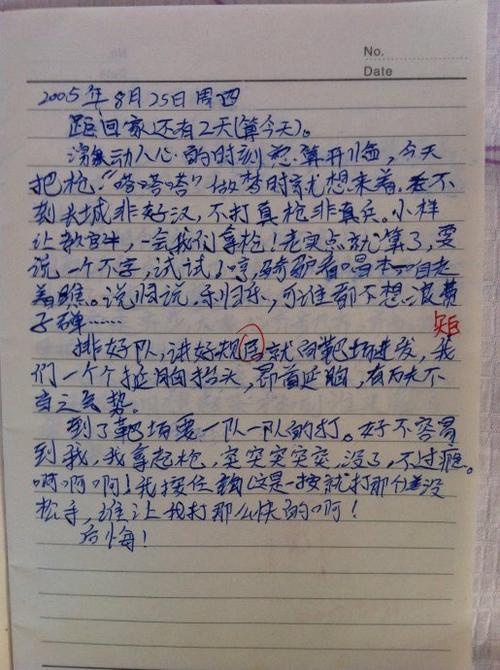 No.
Date
2005年8月25日 周四
距回家还有2天(算今天)。
激动人心的时刻总算开临,今天
把枪"嗒嗒嗒"做梦时就想来着。不
到长城非好汉,不打真枪非真兵。小样
让教官,一会我们拿枪!老实点就算了,要
说一个不字,试试!哼,骑驴看唱本
着瞧。说归说,乐归乐,可谁都不想浪费
子碑……
矩
排好队,讲好规目就向靶场进发,我
们一个个挺胸抬头,昂首挺胸,有万夫不
当之气势。
到了靶场要一队一队的打。好不容易
到我,我拿起枪,突突突突突,没了,不过瘾。
啊啊啊!我按住这是一按就打那
松手,谁让我打那么快的啊!
后悔!